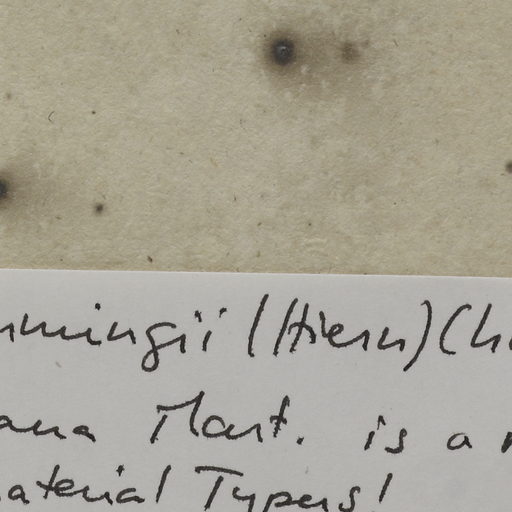 mmingii (Hiern) Ch
ana Mart. is a
aterial Typers!